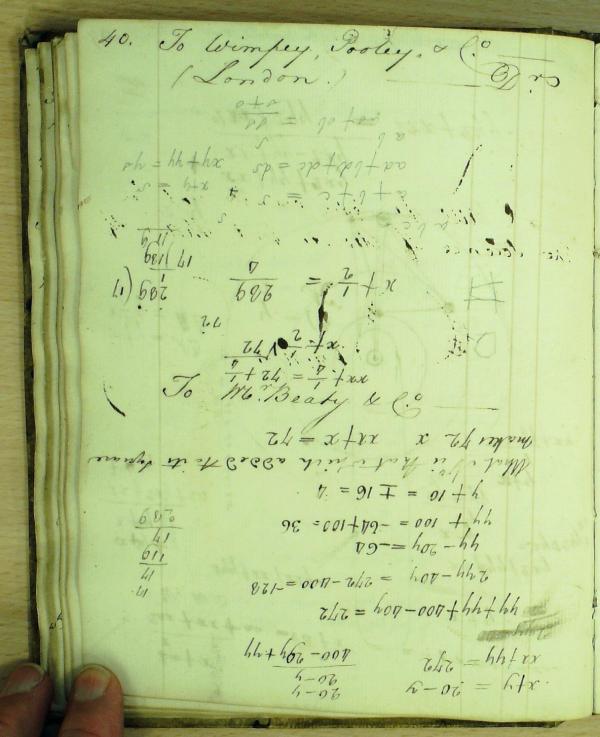 40. To Wimpey, Pooley, & Co. Cr.
(London.)
To Mr. Beaty & Co
x+y = 20-y 20-y
xx+yy = 272 20-y
400-20y+yy
yy+yy+400-40y=272
2yy-40y = 272-400=-128 17
yy-20y=-64 17
yy + 100 = -64+100= 36 119
y+10 = ±16 = 4 17
289
What No is that which added to its square
makes 72 x xx+x = 72
xx+1/4 = 72+1/4
x+1/2 √72
72
x+1/2 = 289/4 289(17
1
17)189
189
a+b+c = s x+y = s
ad+bd+dc=ds xy+yy=ys